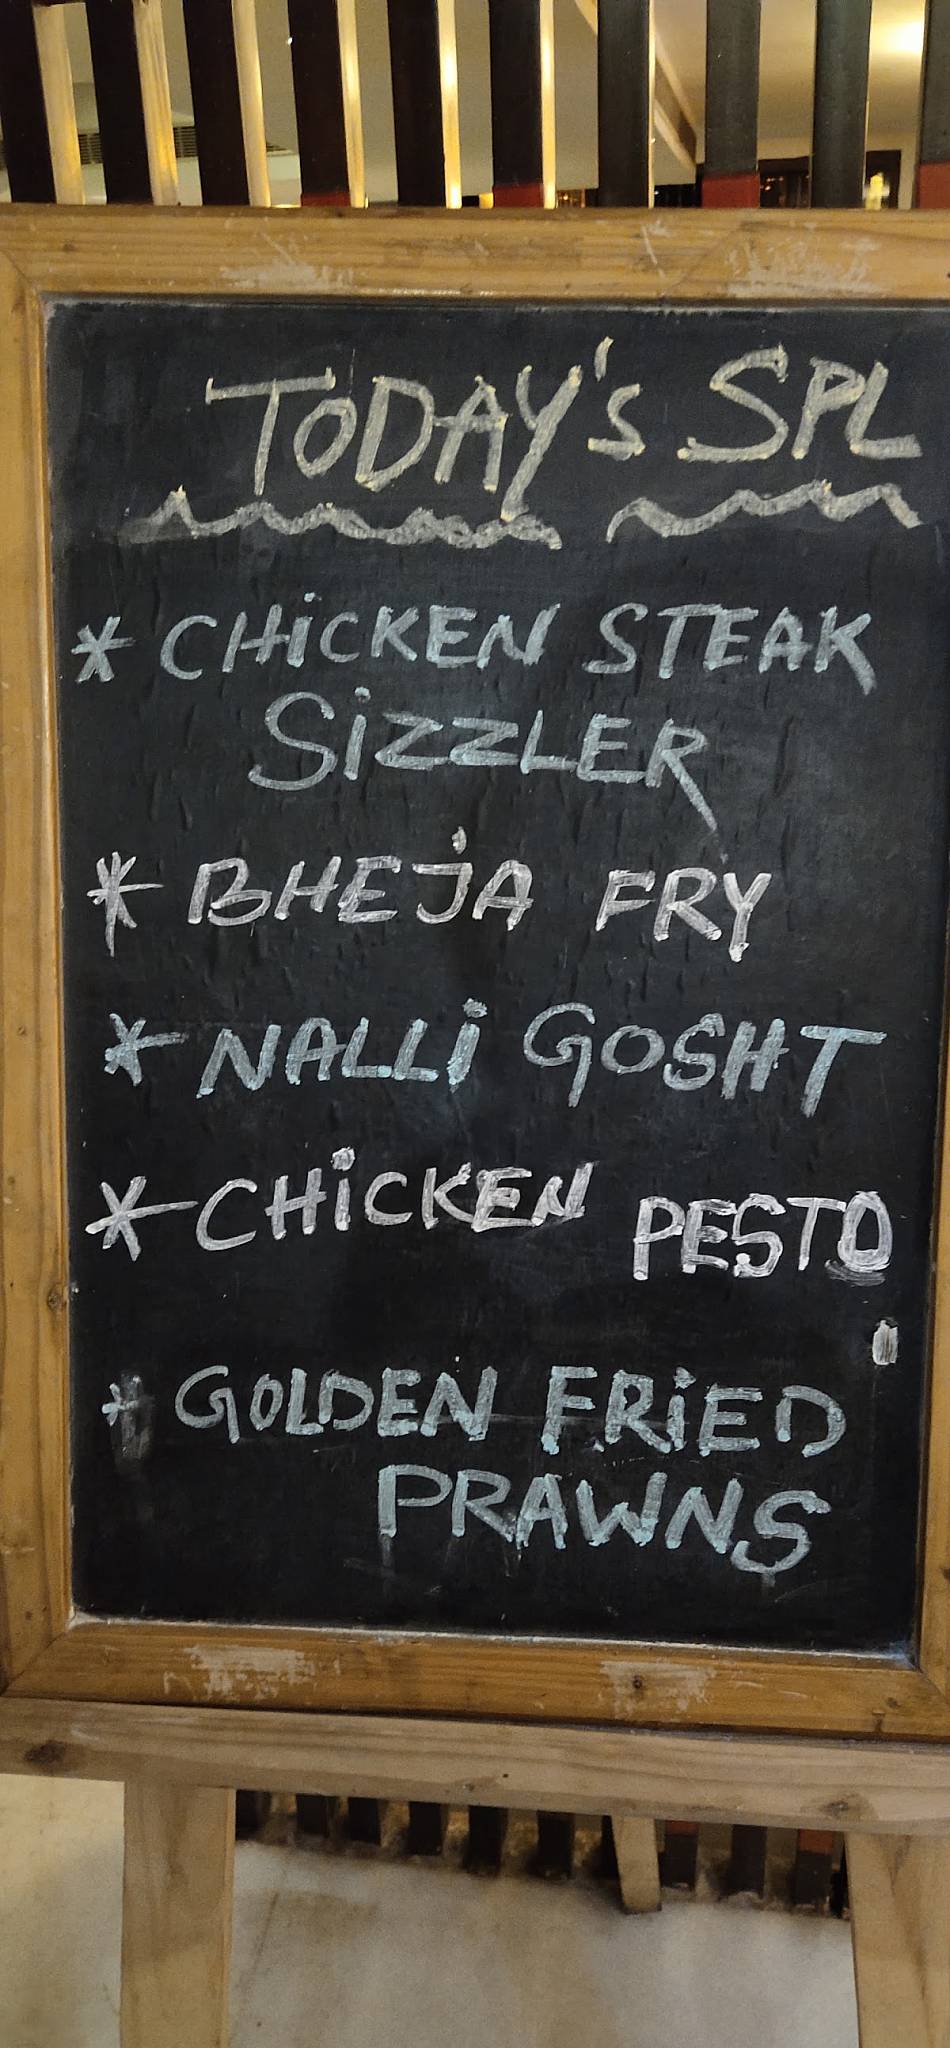 TODAY's SPL
* CHiCKEN STEAK
SiZZLER
* BHEJA FRY
* NALLi GOSHT
* CHiCKEN PESTO
* GOLDEN FRiED
PRAWNS